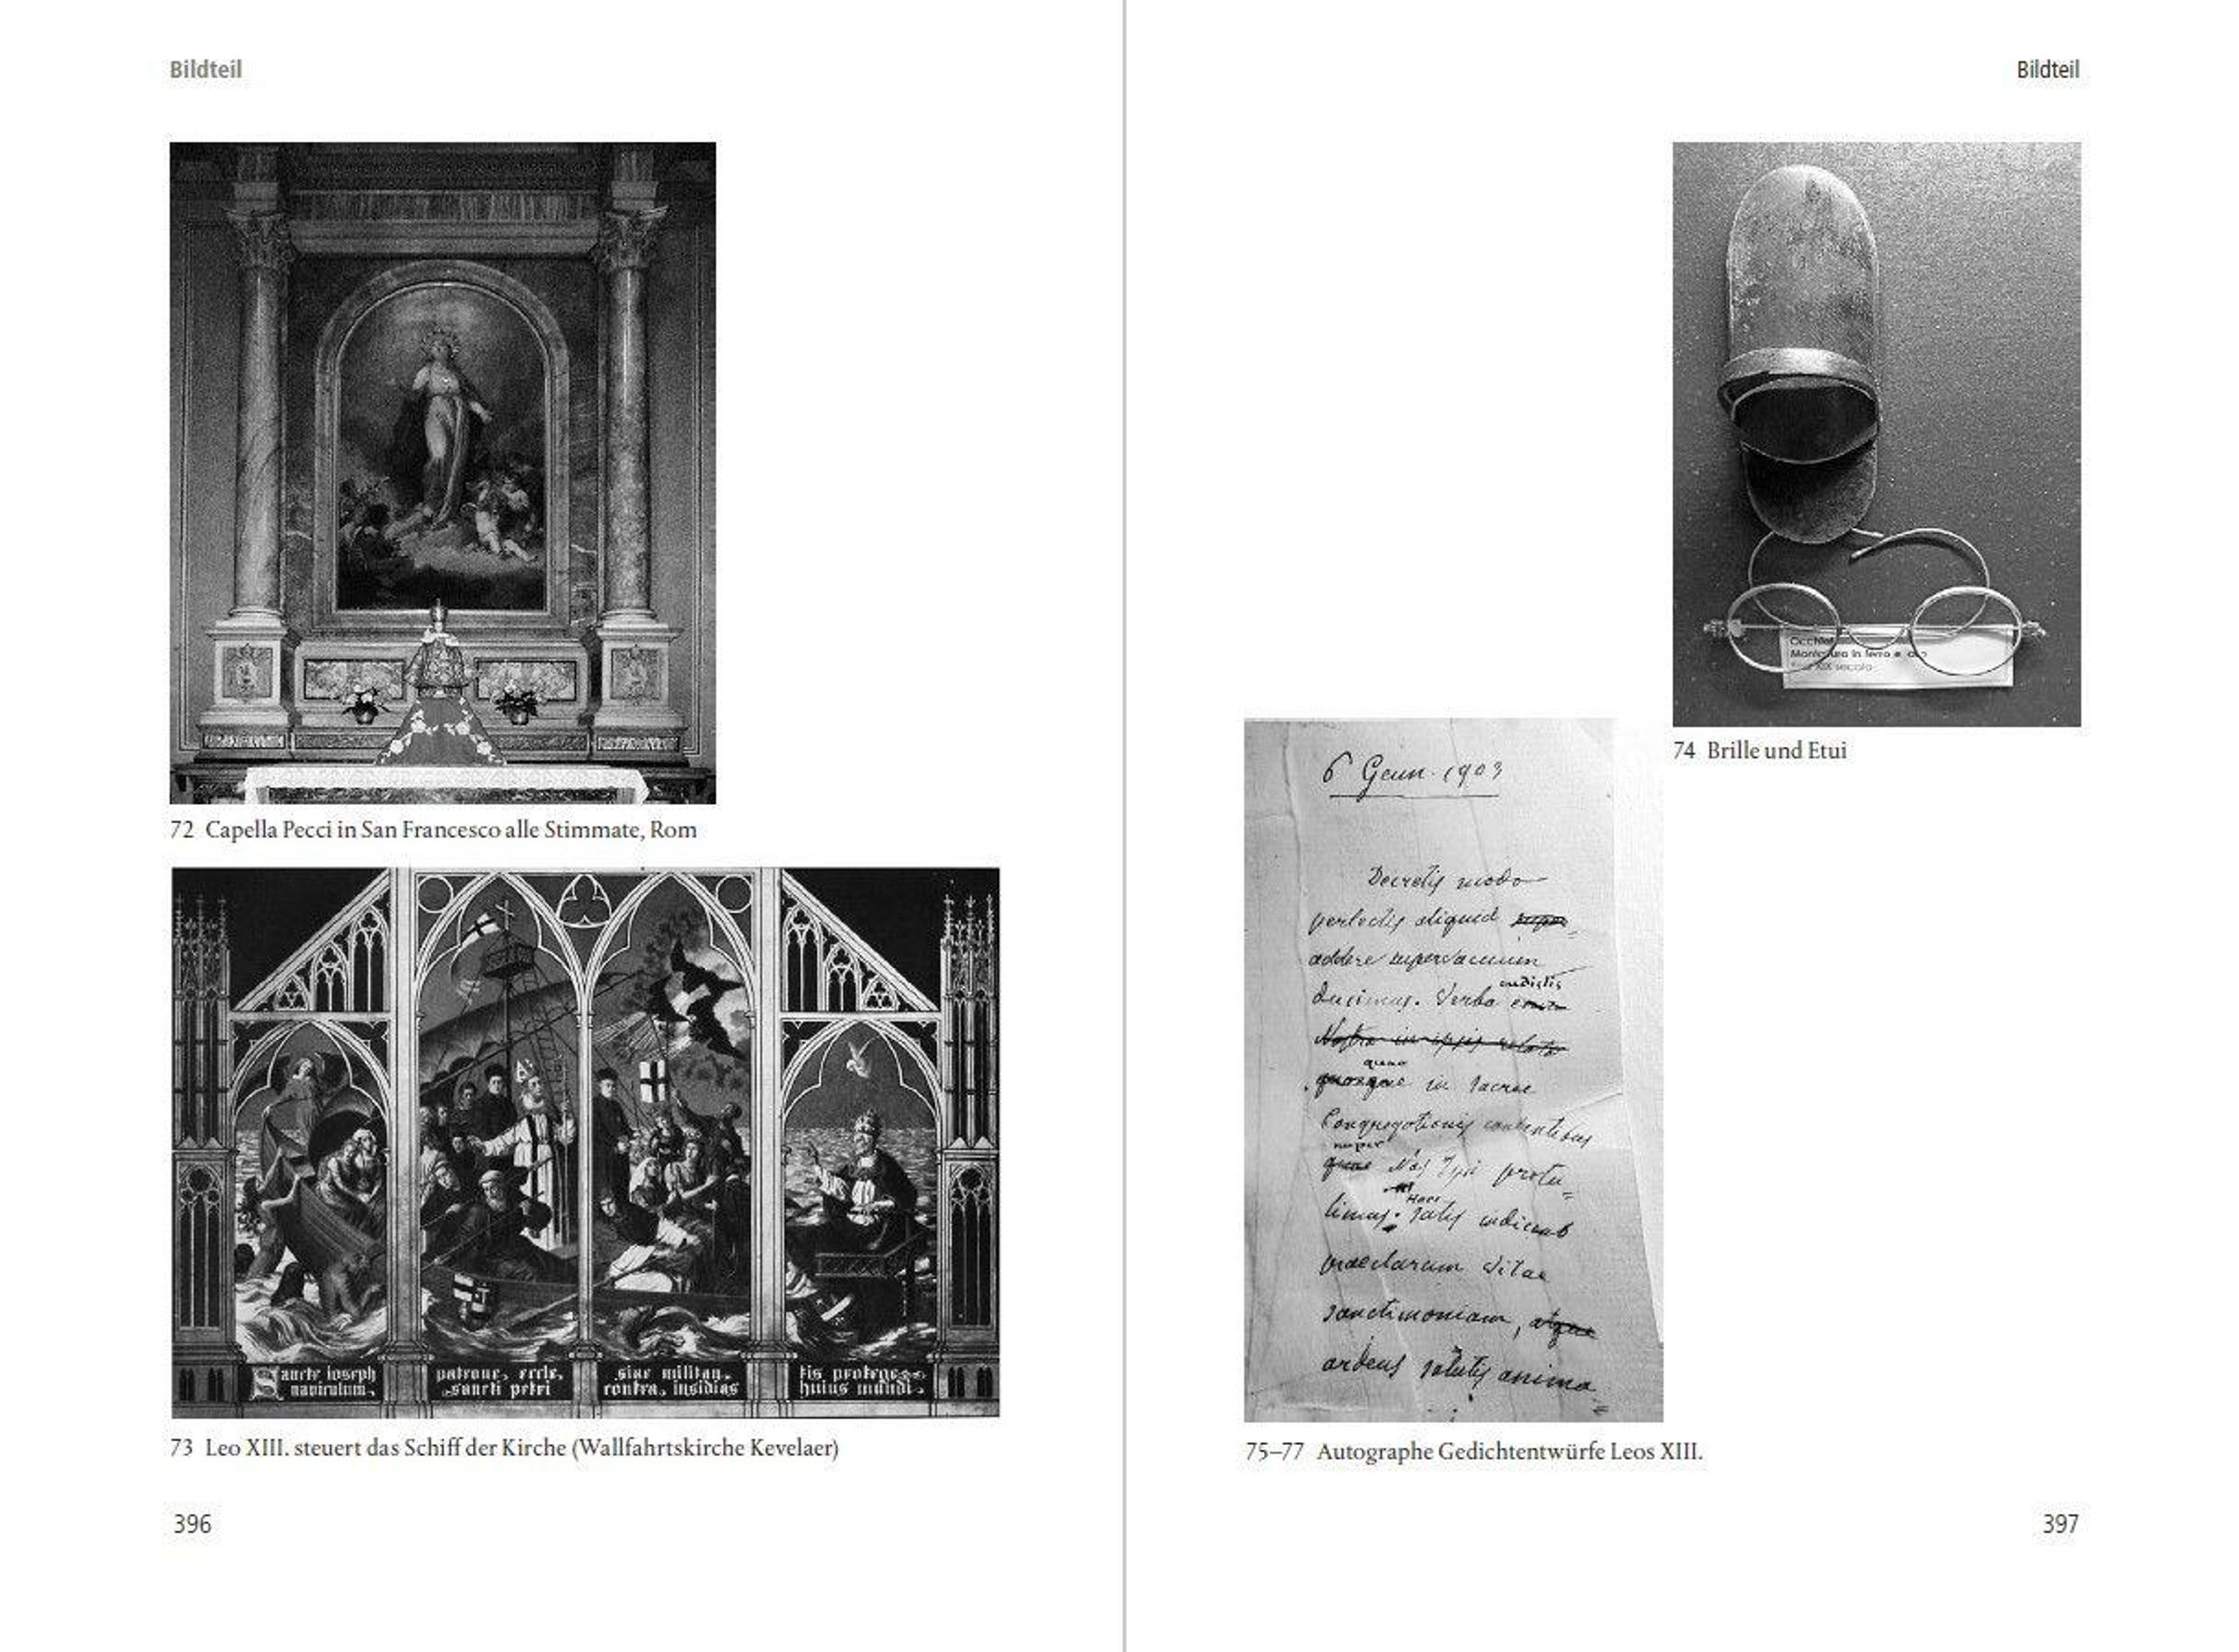 Bildteil
72 Capella Pecci in San Francesco alle Stimmate, Rom
Sancte ioseph
naviculam
patrone eccle
sancti petri
siae militan
contra insidias
tis protege
huius mundi
73 Leo XIII. steuert das Schiff der Kirche (Wallfahrtskirche Kevelaer)
396
Bildteil
Montatura in ferro e
XIX secolo
74 Brille und Etui
6 Genn. 1903
Decretis modo
perlectis aliquid
addere supervacuum
ducimus. Verba
in sacrae
Congregationis
nuper
Nos protu-
limus. Haec satis indicant
praeclarum vitae
sanctimoniam, atque
ardens salutis anima
75–77 Autographe Gedichtentwürfe Leos XIII.
397